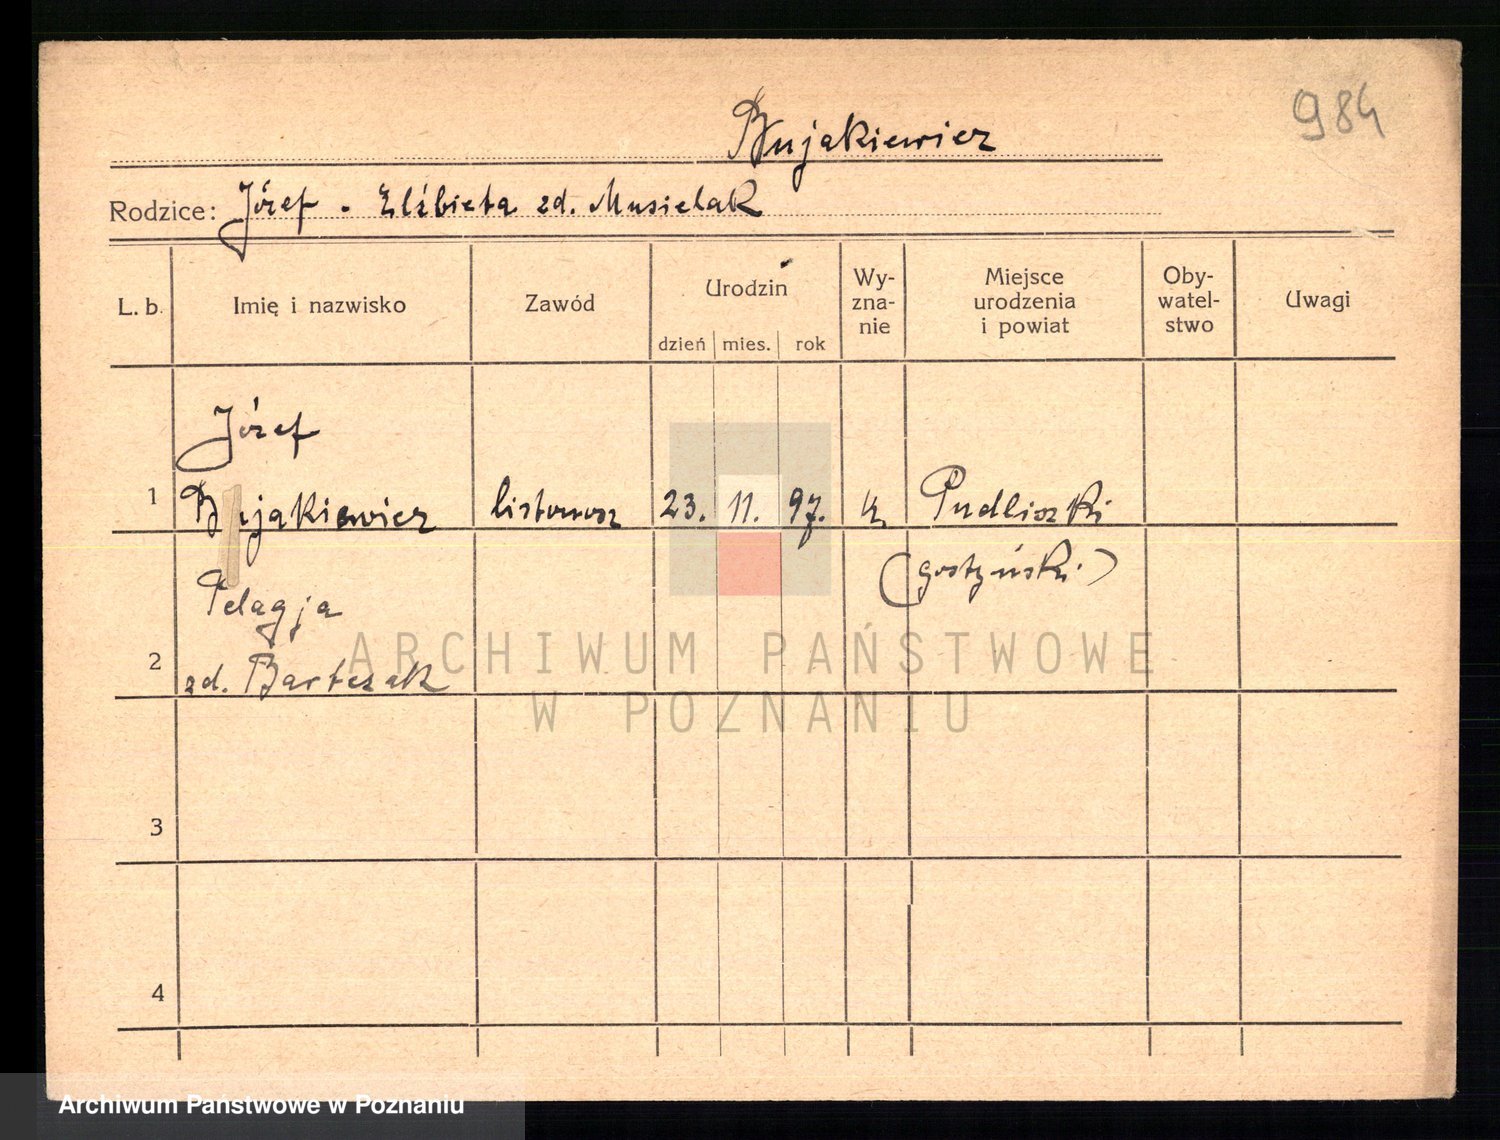 984
Bujakiewicz
Rodzice: Józef - Elżbieta zd. Musielak
L. b.
Imię i nazwisko
Zawód
Urodzin
dzień mies. rok
Wy-
zna-
nie
Miejsce
urodzenia
i powiat
Oby-
watel-
stwo
Uwagi
Józef
1 Bujakiewicz listonosz 23. 11. 97. k Pudliszki
(gostyński)
Pelagja
2 zd. Bartczak
3
4
ARCHIWUM PAŃSTWOWE
W POZNANIU
Archiwum Państwowe w Poznaniu